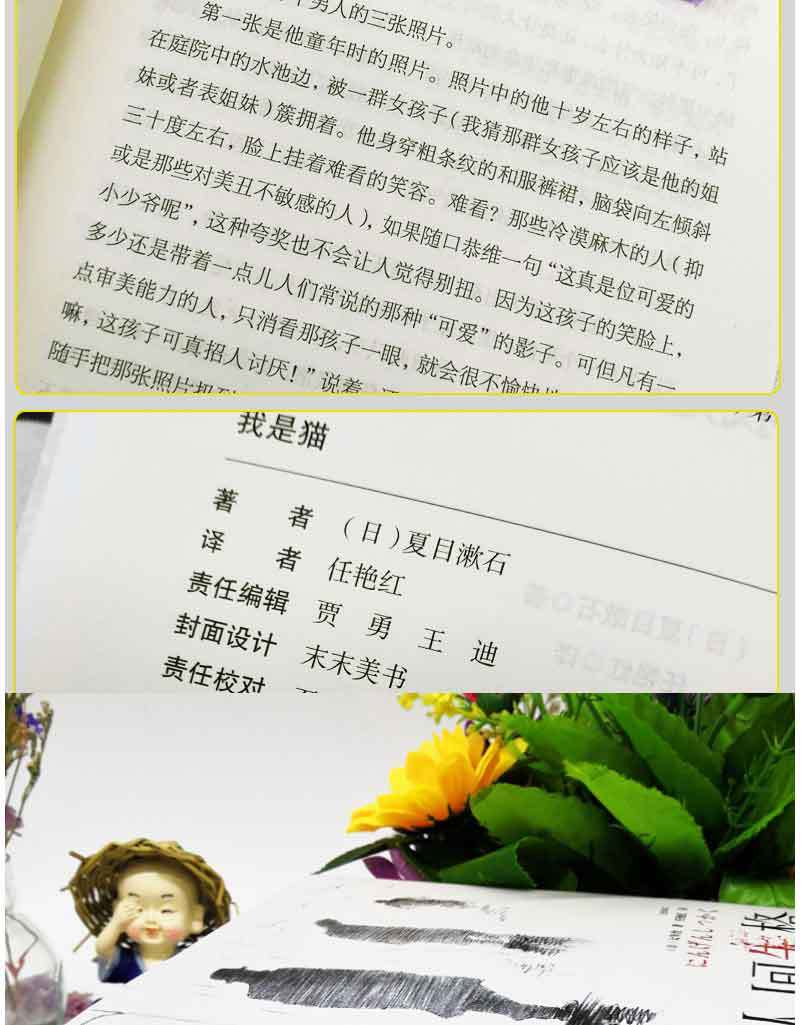 男人的三张照片。
第一张是他童年时的照片。照片中的他十岁左右的样子，站
在庭院中的水池边，被一群女孩子（我猜那群女孩子应该是他的姐
妹或者表姐妹）簇拥着。他身穿粗条纹的和服裤裙，脑袋向左倾斜
三十度左右，脸上挂着难看的笑容。难看？那些冷漠麻木的人（抑
或是那些对美丑不敏感的人），如果随口恭维一句“这真是位可爱的
小少爷呢”，这种夸奖也不会让人觉得别扭。因为这孩子的笑脸上，
多少还是带着一点儿人们常说的那种“可爱”的影子。可但凡有一
点审美能力的人，只消看那孩子一眼，就会很不愉快地
嘛，这孩子可真招人讨厌！”说着，
随手把那张照片扔到
我是猫
著 者 （日）夏目漱石
译 者 任艳红
责任编辑 贾 勇 王 迪
封面设计 末末美书
责任校对
にんげんしっかく
人间失格